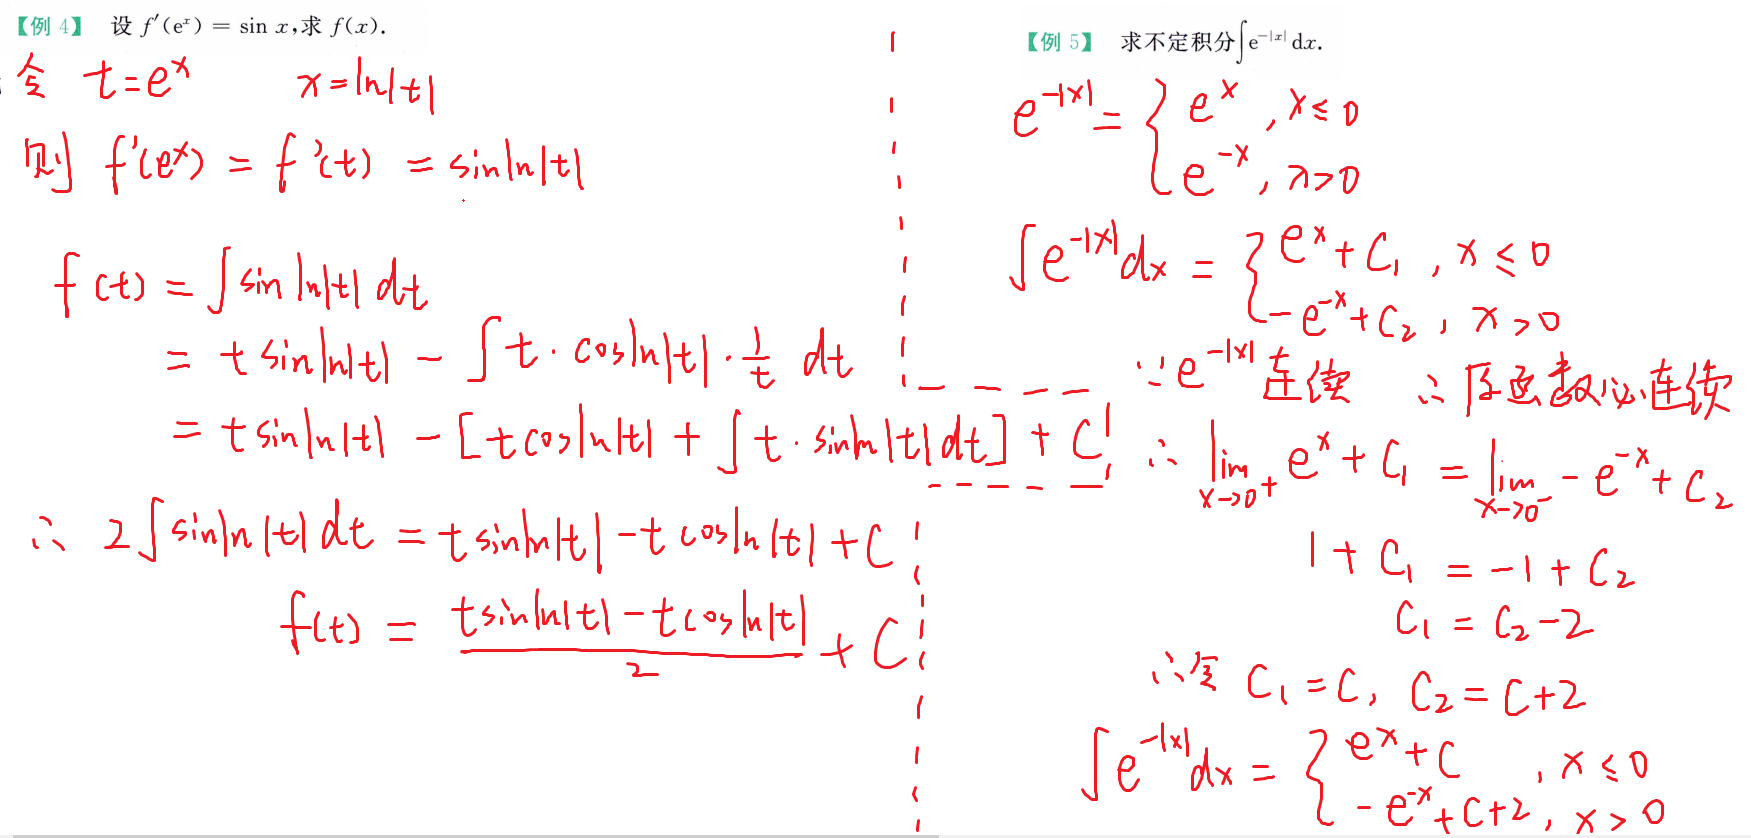 【例 4】 设 f′(eˣ) = sin x,求 f(x).
令 t=eˣ x=ln|t|
则 f'(eˣ) = f'(t) = sinln|t|
f(t) = ∫sin ln|t| dt
= t sinln|t| - ∫t · cosln|t| · 1/t dt
= t sinln|t| - [t cosln|t| + ∫t · sinln|t| dt] + C
∴ 2∫sinln|t| dt = t sinln|t| - t cosln|t| + C
f(t) = (t sinln|t| - t cosln|t|)/2 + C
【例 5】 求不定积分∫e^(-|x|) dx.
e^(-|x|) = { eˣ , x≤0
e^(-x) , x>0
∫e^(-|x|) dx = { eˣ + C₁ , x≤0
-e^(-x) + C₂ , x>0
∵ e^(-|x|) 连续 ∴ 原函数必连续
∴ lim x->0⁺ eˣ + C₁ = lim x->0⁻ -e^(-x) + C₂
1 + C₁ = -1 + C₂
C₁ = C₂ - 2
∴令 C₁ = C, C₂ = C+2
∫e^(-|x|) dx = { eˣ + C , x≤0
-e^(-x) + C+2 , x>0